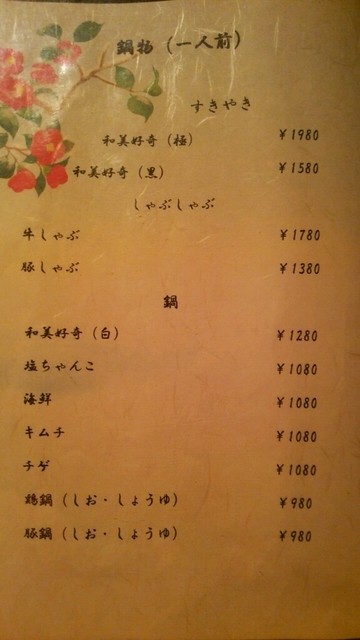 鍋物（一人前）
すきやき
和美好奇（極） ￥1980
和美好奇（黒） ￥1580
しゃぶしゃぶ
牛しゃぶ ￥1780
豚しゃぶ ￥1380
鍋
和美好奇（白） ￥1280
塩ちゃんこ ￥1080
海鮮 ￥1080
キムチ ￥1080
チゲ ￥1080
鶏鍋（しお・しょうゆ） ￥980
豚鍋（しお・しょうゆ） ￥980